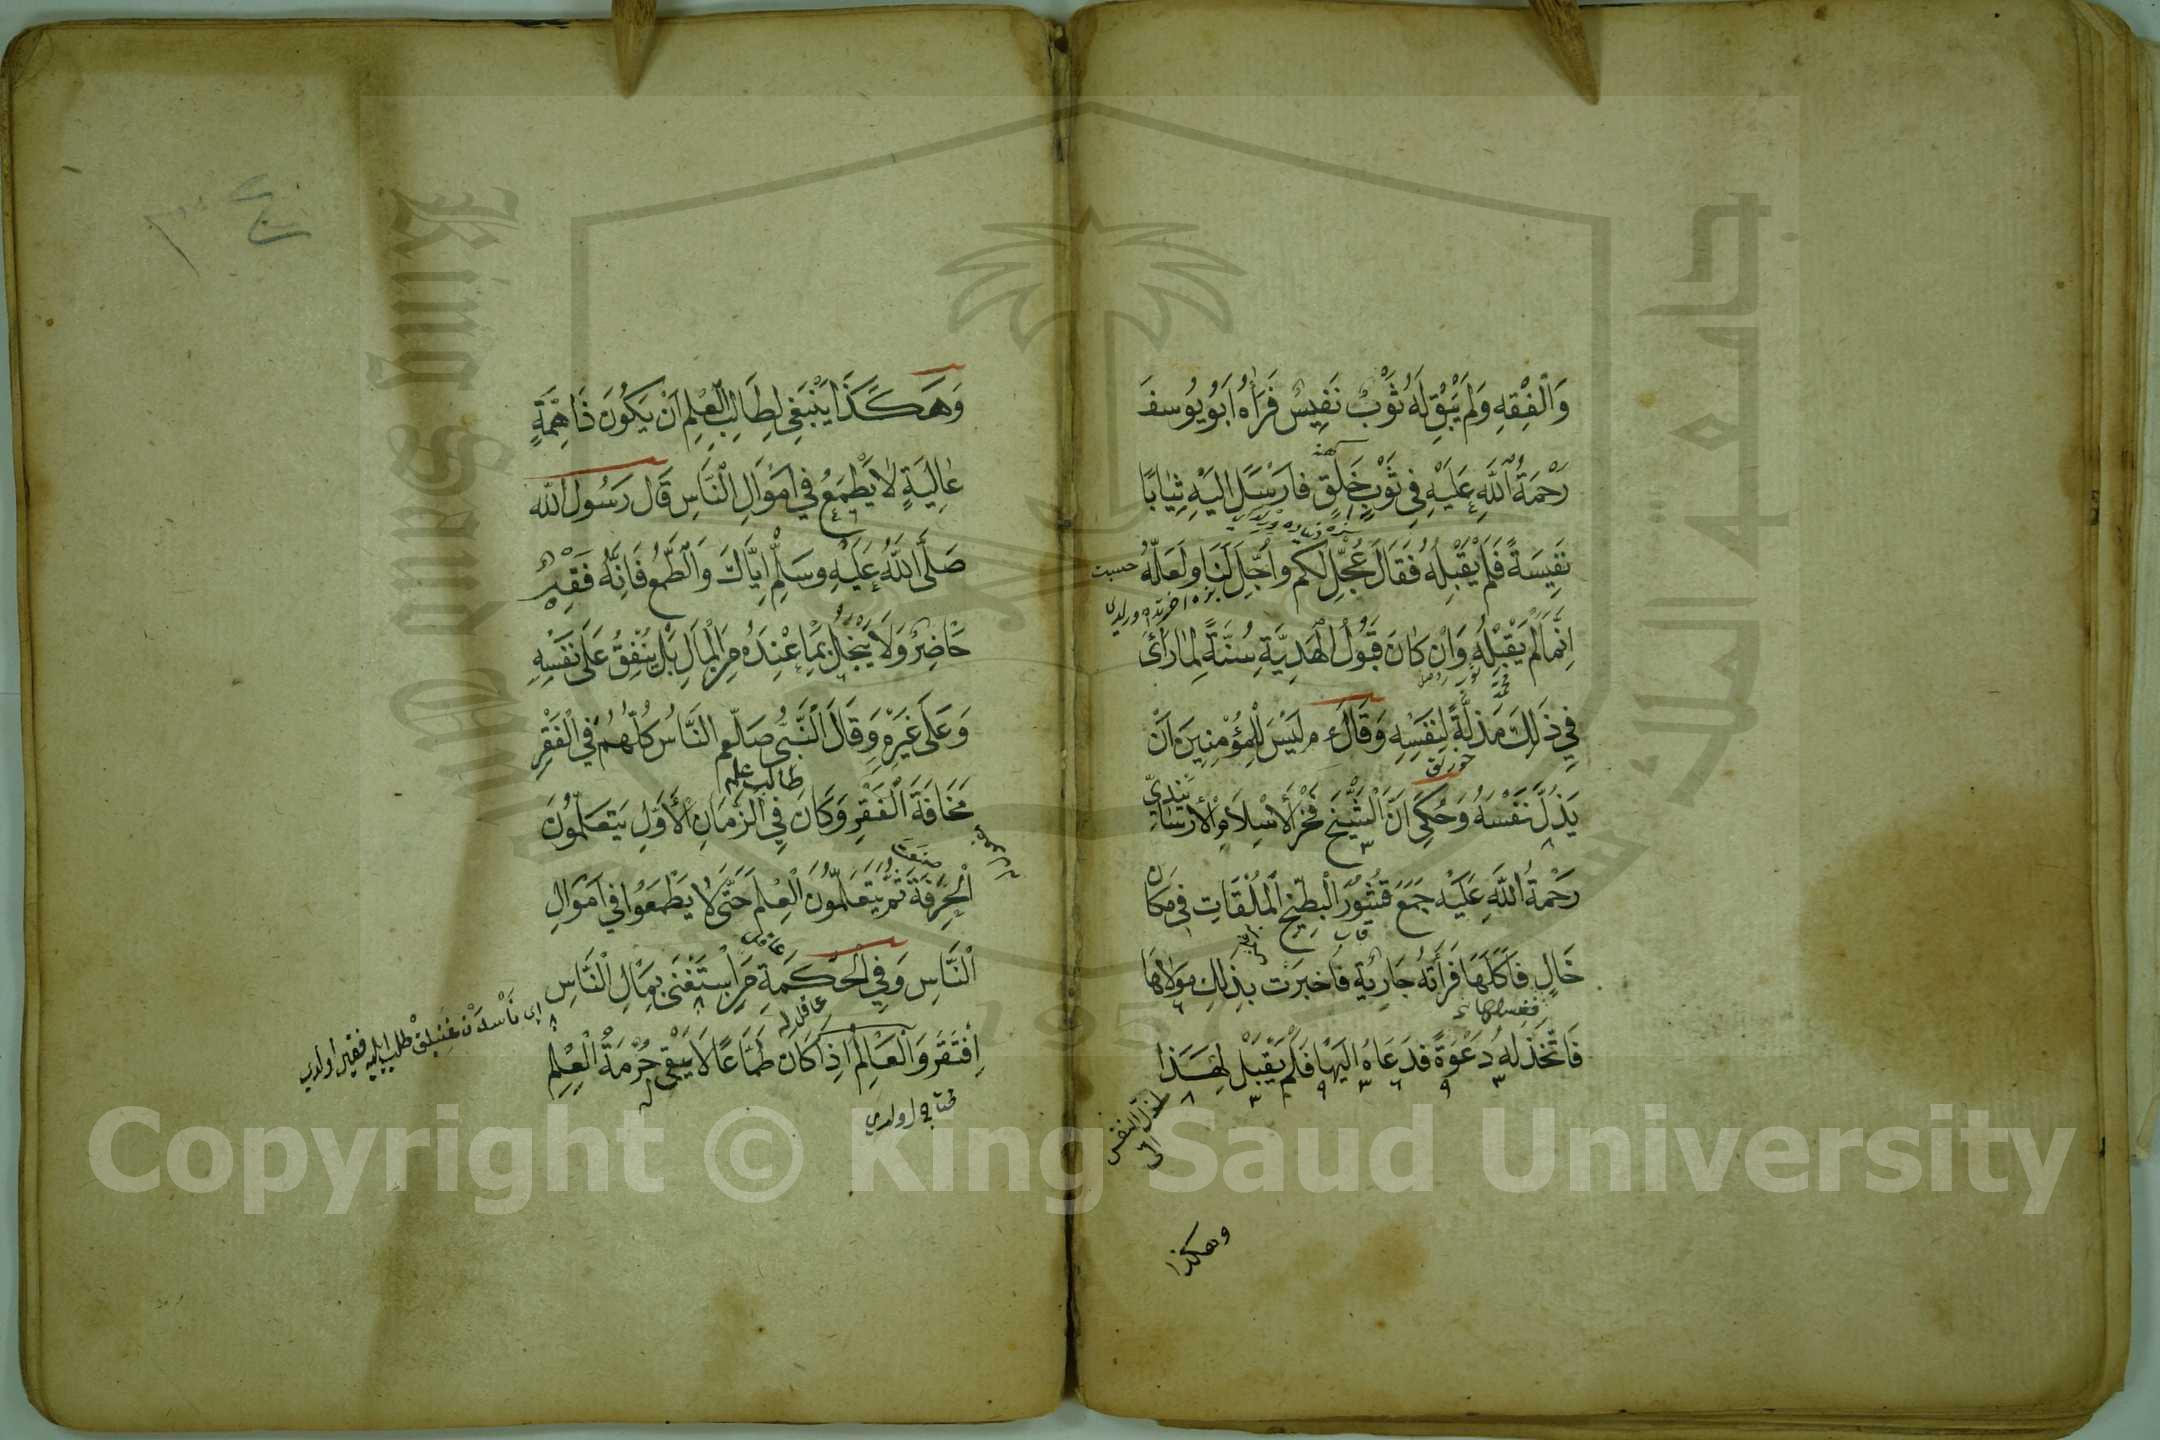 وَالْفِقْهِ وَلَمْ يَبْقَ لَهُ ثَوْبٌ نَفِيسٌ فَرَآهُ اَبُو يُوسفَ
رَحْمَةُ اللّٰهِ عَلَيْهِ فِي ثَوْبٍ خَلِقٍ فَارَسَلَ اِلَيْهِ ثِيَابًا
نَفِيسَةً فَلَمْ يَقْبَلْهُ فَقَالَ عُجِّلَ لَكُم وَاُجِّلَ لَنَا وَلَعَلَّهُ
اِنَّمَا لَمْ يَقْبِلْهُ وَاِنْ كَانَ قَبُولُ الْهَدِيَّةِ سُنَّةً لِمَا رَأَى
فِي ذٰلِكَ مَذَلَّةً لِنَفْسِهِ وَقَالَ ع م لَيْسَ لِلْمُؤْمِنِينَ اَنْ
يَذُلَّ نَفْسَهُ وَحُكِيَ اَنَّ الشَّيْخَ فَخْرَ الْاِسْلَامِ الْاَرْسَابَنْدِيّ
رَحْمَةُ اللّٰهِ عَلَيْهِ جَمَعَ قُشُورَ الْبِطِّيخِ الْمُلْقَاتِ فِي مَكَانٍ
خَالٍ فَاَكَلَهَا فَرَأَتْهُ جَارِيَةٌ فَاَخبَرَت بِذٰلِكَ مَوْلَاهَا
فَاتَّخَذَ لَهُ دَعْوَةً فَدَعَاهُ اِلَيْهَا فَلَمْ يَقْبَلْ لِهٰذَا
لذل النفس
وهكذا
وَهَكَذَا يَنْبَغِي لِطَالِبِ الْعِلْمِ اَنْ يَكُونَ ذَا هِمَّةٍ
عَالِيَةٍ لَا يَطْمَعُ فِي اَمْوَالِ النَّاسِ قَالَ رَسُولُ اللّٰه
صَلَّى اللّٰهُ عَلَيْهِ وسَلَّمَ اِيَّاكَ وَالطَّمَعَ فَاِنَّهُ فَقْرٌ
حَاضِرٌ وَلَا يَبْخَلُ بِمَا عِنْدَهُ مِنَ الْمَالِ بَلْ يُنْفِقُ عَلَى نَفْسِهِ
وَعَلَى غَيْرِهِ وَقَالَ النَّبِيُّ صَلّعم النَّاسُ كُلُّهُمْ فِي الْفَقْرِ
طالب علم
مَخَافَةَ الْفَقْرِ وَكَانَ فِي الزَّمَانِ الْاَوَّلِ يَتَعَلَّمُونَ
الْحِرْفَةَ ثُمَّ يَتَعَلَّمُونَ الْعِلْمَ حَتَّى لَا يَطْمَعُوا فِي اَمْوَالِ
النَّاسِ وَفِي الْحِكْمَةِ مَنِ اسْتَغْنَى بِمَالِ النَّاسِ
اِفْتَقَرَ وَالْعَالِمُ اِذَا كَانَ طَمَّاعًا لَا يَبْقَى حُرْمَةُ الْعِلْمِ
محتاج اولدي
Copyright © King Saud University